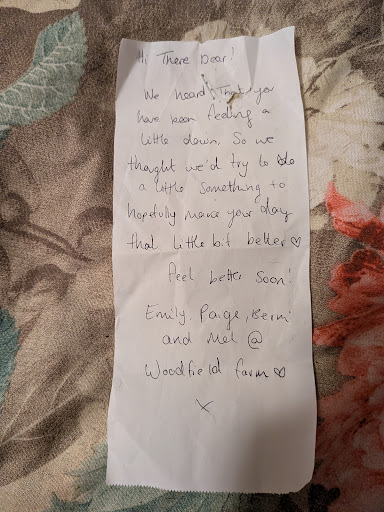 Hi There Dear!
We heard That you
have been feeling a
little down. So we
thought we'd try to do
a little something to
hopefully make your day
that little bit better ♡
Feel better Soon!
Emily, Paige, Berni
and Mel @
Woodfield farm ♡
X